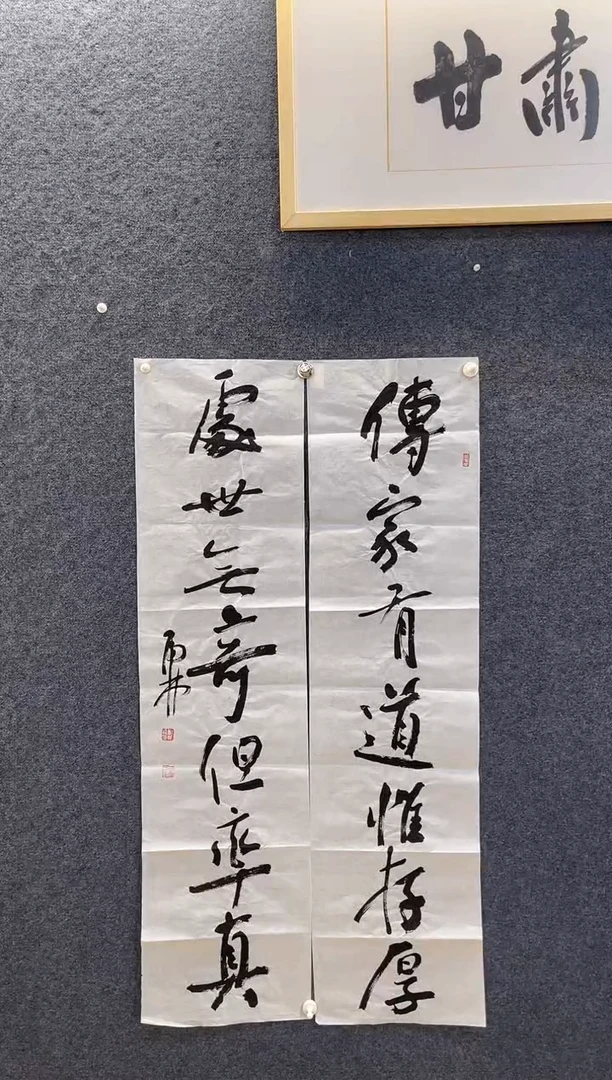 甘肅
傳家有道惟存厚
處世無奇但率真
雨林